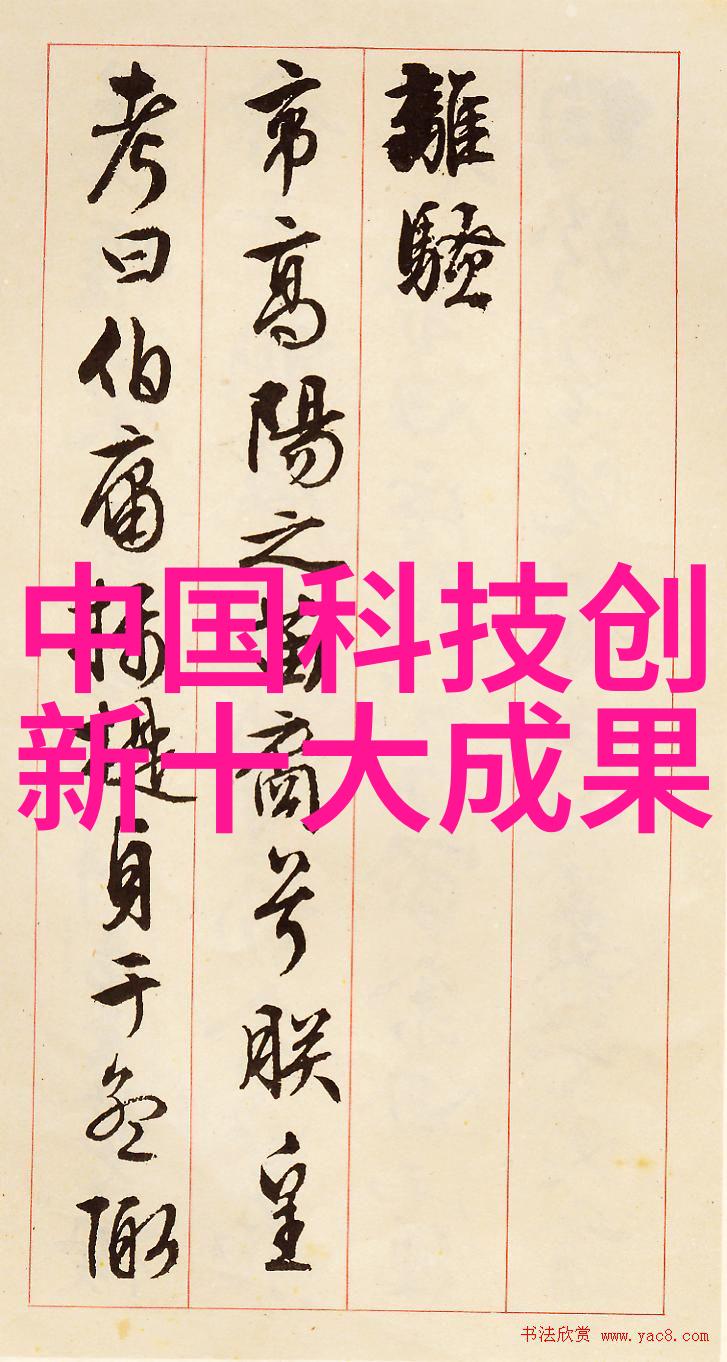 離騷
帝高陽之苗裔兮朕皇
考曰伯庸攝提貞于孟陬
中国科技创
新十大成果
书法欣赏 www.yac8.com